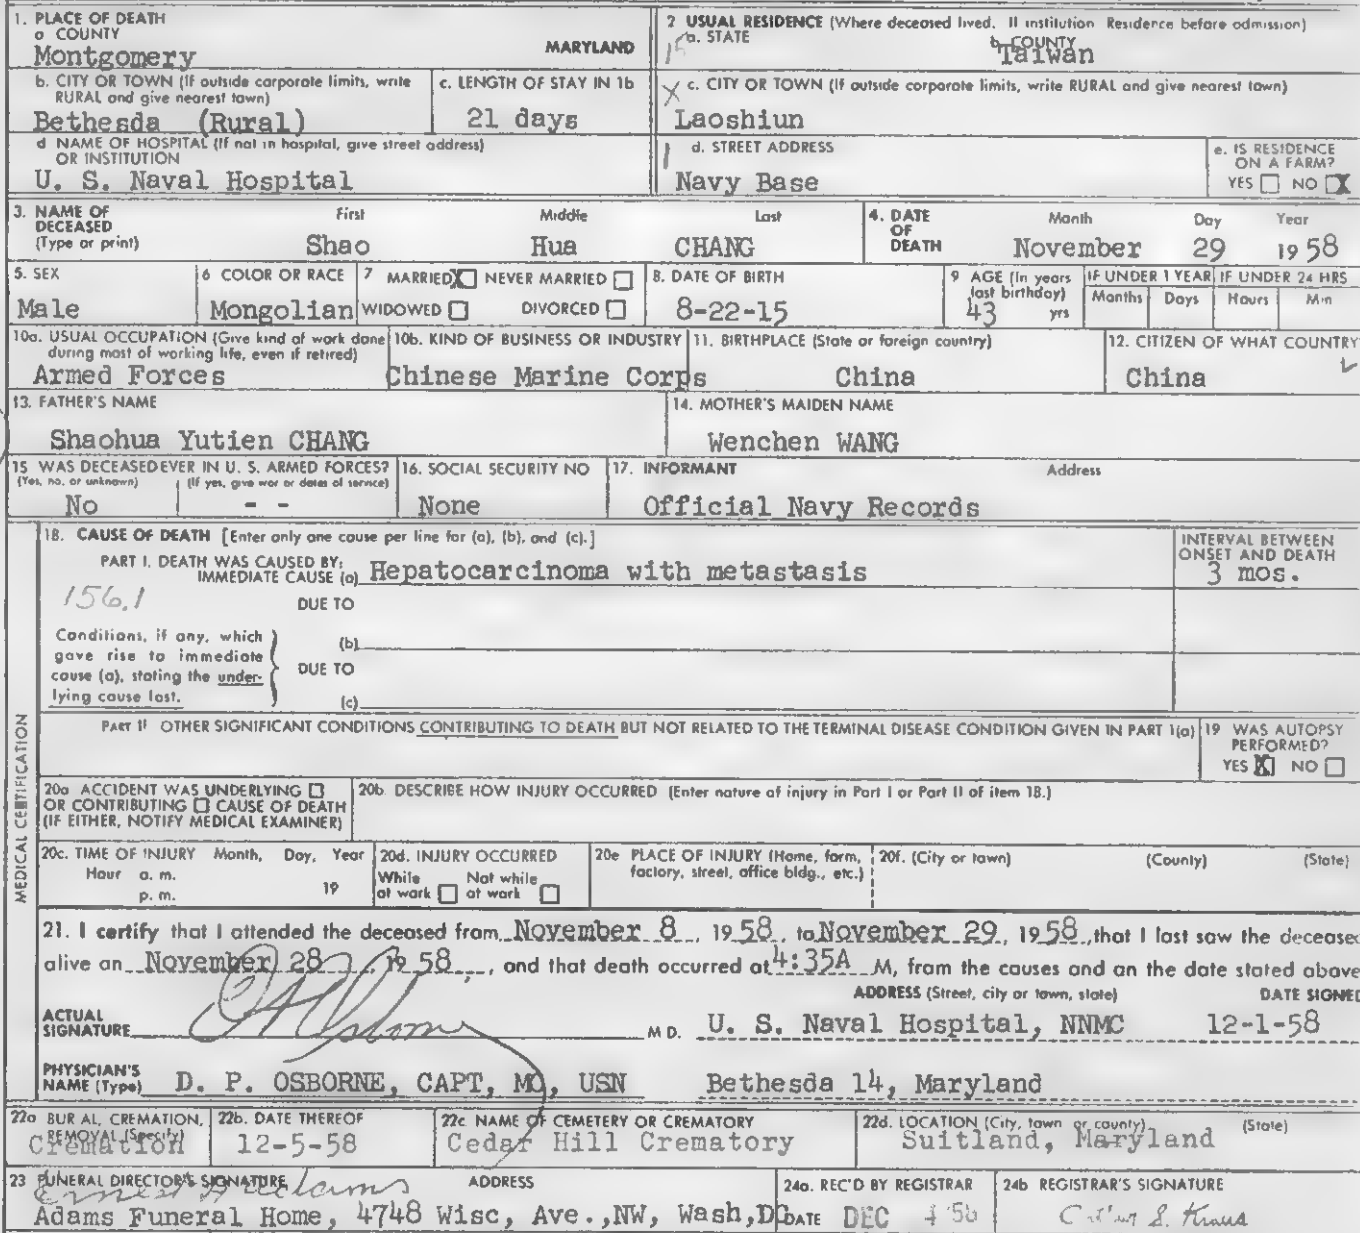 1. PLACE OF DEATH
a COUNTY
Montgomery MARYLAND
2 USUAL RESIDENCE (Where deceased lived. If institution Residence before admission)
a. STATE b. COUNTY
Taiwan
b. CITY OR TOWN (If outside corporate limits, write RURAL and give nearest town)
Bethesda (Rural)
c. LENGTH OF STAY IN 1b
21 days
c. CITY OR TOWN (If outside corporate limits, write RURAL and give nearest town)
Laoshiun
d NAME OF HOSPITAL (If not in hospital, give street address)
OR INSTITUTION
U. S. Naval Hospital
d. STREET ADDRESS
Navy Base
e. IS RESIDENCE
ON A FARM?
YES NO X
3. NAME OF
DECEASED
(Type or print)
First Middle Last
Shao Hua CHANG
4. DATE
OF
DEATH
Month Day Year
November 29 1958
5. SEX
Male
6 COLOR OR RACE
Mongolian
7 MARRIED X NEVER MARRIED
WIDOWED DIVORCED
8. DATE OF BIRTH
8-22-15
9 AGE (In years
last birthday)
43 yrs
IF UNDER 1 YEAR IF UNDER 24 HRS
Months Days Hours Min
10a. USUAL OCCUPATION (Give kind of work done
during most of working life, even if retired)
Armed Forces
10b. KIND OF BUSINESS OR INDUSTRY
Chinese Marine Corps
11. BIRTHPLACE (State or foreign country)
China
12. CITIZEN OF WHAT COUNTRY
China
13. FATHER'S NAME
Shaohua Yutien CHANG
14. MOTHER'S MAIDEN NAME
Wenchen WANG
15 WAS DECEASED EVER IN U. S. ARMED FORCES?
(Yes, no, or unknown) (If yes, give war or dates of service)
No - -
16. SOCIAL SECURITY NO
None
17. INFORMANT Address
Official Navy Records
MEDICAL CERTIFICATION
18. CAUSE OF DEATH [Enter only one cause per line for (a), (b), and (c).]
INTERVAL BETWEEN
ONSET AND DEATH
PART I. DEATH WAS CAUSED BY:
IMMEDIATE CAUSE (a) Hepatocarcinoma with metastasis 3 mos.
156.1
DUE TO
Conditions, if any, which
gave rise to immediate
cause (a), stating the under-
lying cause last.
(b)
DUE TO
(c)
PART II OTHER SIGNIFICANT CONDITIONS CONTRIBUTING TO DEATH BUT NOT RELATED TO THE TERMINAL DISEASE CONDITION GIVEN IN PART I(a)
19 WAS AUTOPSY
PERFORMED?
YES X NO
20a ACCIDENT WAS UNDERLYING
OR CONTRIBUTING CAUSE OF DEATH
(IF EITHER, NOTIFY MEDICAL EXAMINER)
20b. DESCRIBE HOW INJURY OCCURRED (Enter nature of injury in Part I or Part II of item 18.)
20c. TIME OF INJURY Month, Day, Year
Hour a. m.
p. m. 19
20d. INJURY OCCURRED
While Not while
at work at work
20e PLACE OF INJURY (Home, farm,
factory, street, office bldg., etc.)
20f. (City or town) (County) (State)
21. I certify that I attended the deceased from November 8, 1958, to November 29, 1958, that I last saw the deceased
alive on November 28, 1958, and that death occurred at 4:35A M, from the causes and on the date stated above
ADDRESS (Street, city or town, state) DATE SIGNED
ACTUAL
SIGNATURE M D. U. S. Naval Hospital, NNMC 12-1-58
PHYSICIAN'S
NAME (Type) D. P. OSBORNE, CAPT, MC, USN Bethesda 14, Maryland
22a BURIAL, CREMATION,
REMOVAL (Specify)
Cremation
22b. DATE THEREOF
12-5-58
22c NAME OF CEMETERY OR CREMATORY
Cedar Hill Crematory
22d. LOCATION (City, town or county) (State)
Suitland, Maryland
23 FUNERAL DIRECTOR'S SIGNATURE ADDRESS
Adams Funeral Home, 4748 Wisc, Ave.,NW, Wash,DC
24a. REC'D BY REGISTRAR
DATE DEC
24b REGISTRAR'S SIGNATURE